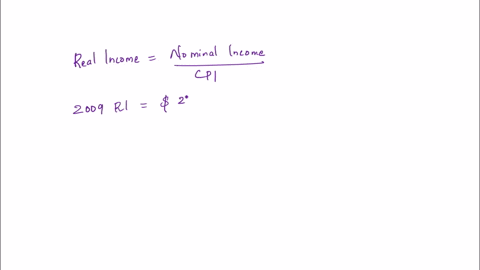 Real Income = Nominal Income / CPI
2009 RI = $ 2